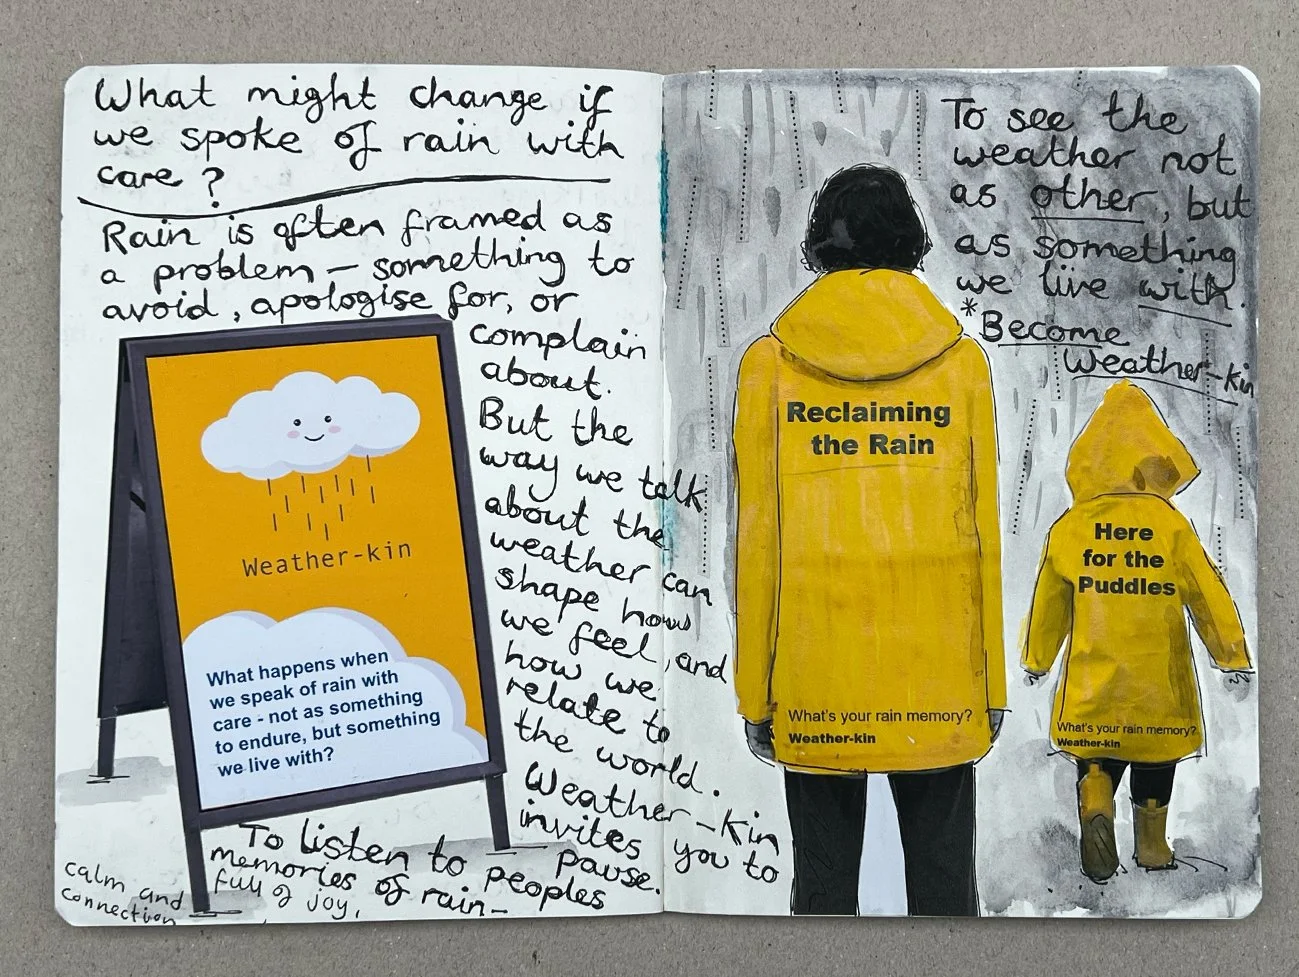 What might change if
we spoke of rain with
care ?
Rain is often framed as
a problem – something to
avoid, apologise for, or
complain
about.
But the
way we talk
about the
weather can
shape how
we feel, and
how we
relate to
the world.
Weather-Kin
invites you to
pause.
To listen to peoples
memories of rain –
full of joy,
calm and
connection
Weather-kin
What happens when
we speak of rain with
care - not as something
to endure, but something
we live with?
To see the
weather not
as other, but
as something
we live with.
*Become
Weather-Kin
Reclaiming
the Rain
What's your rain memory?
Weather-kin
Here
for the
Puddles
What's your rain memory?
Weather-kin